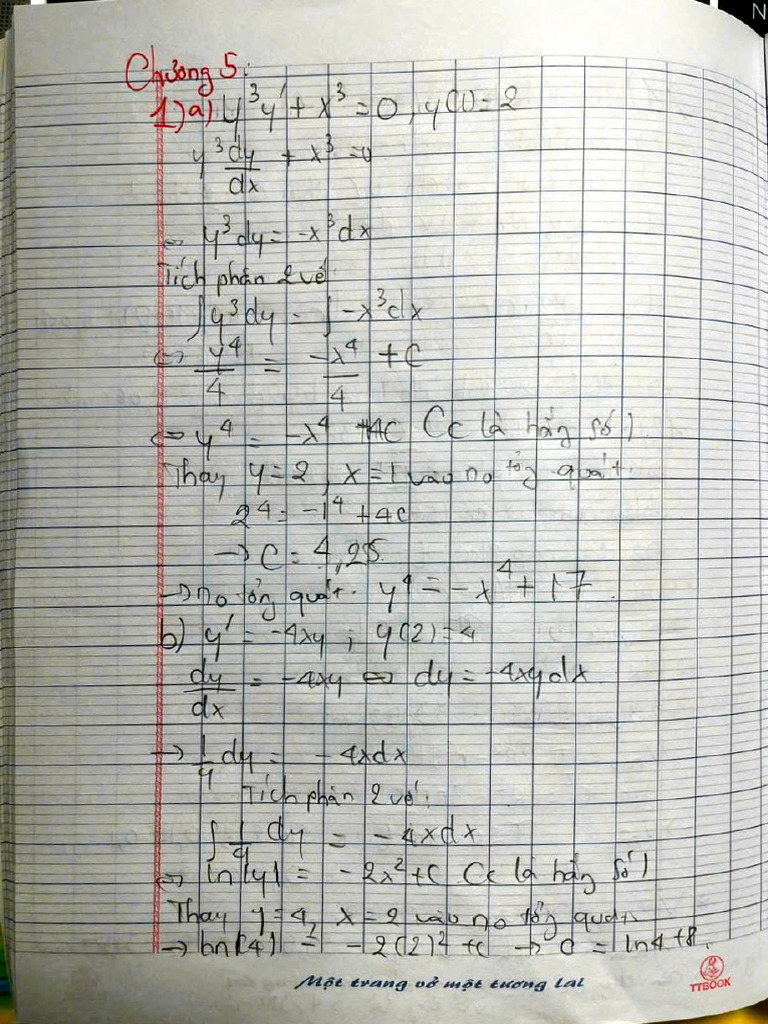 Chương 5:
1) a) y³y' + x³ = 0, y(1) = 2
y³ dy/dx + x³ = 0
⇔ y³dy = -x³dx
Tích phân 2 vế:
∫y³dy = ∫-x³dx
⇔ y⁴/4 = -x⁴/4 + C
⇔ y⁴ = -x⁴ + 4C (C là hằng số)
Thay y = 2, x = 1 vào no tổng quát.
2⁴ = -1⁴ + 4C
→ C = 4,25
→ no tổng quát. y⁴ = -x⁴ + 17.
b) y' = -4xy ; y(2) = 4
dy/dx = -4xy ⇔ dy = -4xydx
→ 1/y dy = -4xdx
Tích phân 2 vế:
∫ 1/y dy = -4xdx
⇔ ln|y| = -2x² + C (C là hằng số)
Thay y = 4, x = 2 vào no tổng quát
→ ln(4) = -2(2)² + C → C = ln4 + 8.
Một trang vở một tương lai
TTBOOK
N